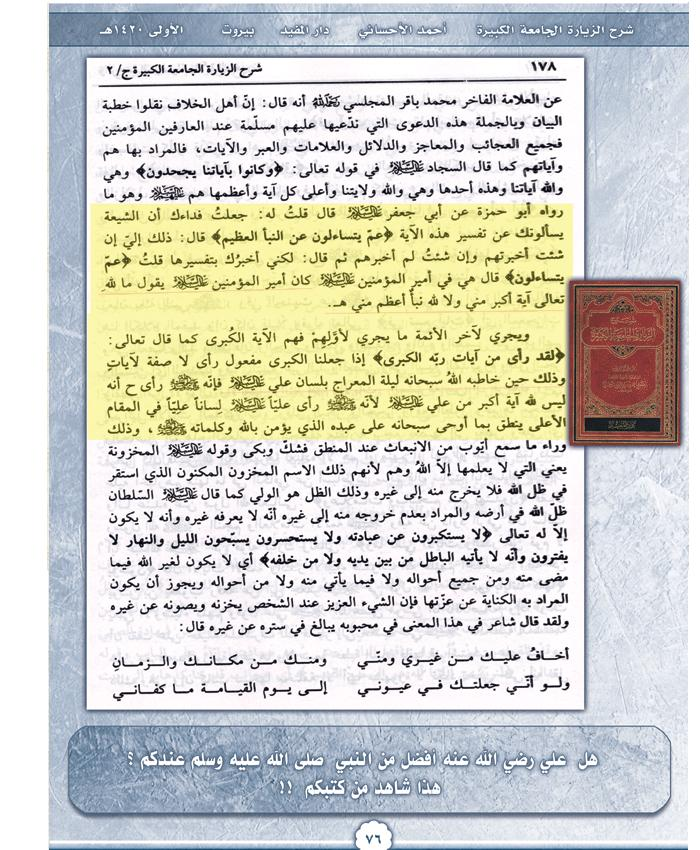 شرح الزيارة الجامعة الكبيرة أحمد الأحسائي دار المفيد بيروت الأولى ١٤٢٠هـ
١٧٨ شرح الزيارة الجامعة الكبيرة ج/٢
عن العلامة الفاخر محمد باقر المجلسي رحمه الله أنه قال: إنّ أهل الخلاف نقلوا خطبة
البيان وبالجملة هذه الدعوى التي ندّعيها عليهم مسلّمة عند العارفين المؤمنين
فجميع العجائب والمعاجز والدلائل والعلامات والعبر والآيات، فالمراد بها هم
وآياتهم كما قال السجاد عليه السلام في قوله تعالى: ﴿وكانوا بآياتنا يجحدون﴾ وهي
والله آياتنا وهذه أحدها وهي والله ولايتنا وأعلى كل آية وأعظمها هم عليهم السلام وهو ما
رواه أبو حمزة عن أبي جعفر عليه السلام قال قلتُ له: جعلتُ فداءك أن الشيعة
يسألونك عن تفسير هذه الآية ﴿عمّ يتساءلون عن النبأ العظيم﴾ قال: ذلك إليّ إن
شئت أخبرتهم وإن شئتُ لم أخبرهم ثم قال: لكني أخبرُك بتفسيرها قلتُ ﴿عمّ
يتساءلون﴾ قال هي في أمير المؤمنين عليه السلام كان أمير المؤمنين عليه السلام يقول ما للهِ
تعالى آية أكبر مني ولا لله نبأ أعظم مني هـ.
ويجري لآخر الأئمة ما يجري لأوّلِهِمْ فهم الآية الكُبرى كما قال تعالى:
﴿لقد رأى من آيات ربّه الكبرى﴾ إذا جعلنا الكبرى مفعول رأى لا صفة لآياتِ
وذلك حين خاطبه اللهُ سبحانه ليلة المعراج بلسان علي عليه السلام فإنّه صلى الله عليه وآله رأى ح أنه
ليس لله آية أكبر من علي عليه السلام لأنّه صلى الله عليه وآله رأى عليّاً عليه السلام لِساناً عليّاً في المقام
الأعلى ينطق بما أوحى سبحانه على عبده الذي يؤمن بالله وكلماته صلى الله عليه وآله، وذلك
وراء ما سمع أيّوب من الانبعاث عند المنطق فشكّ وبكى وقوله عليه السلام المخزونة
يعني التي لا يعلمها إلاّ اللهُ وهم لأنهم ذلك الاسم المخزون المكنون الذي استقر
في ظل الله فلا يخرج منه إلى غيره وذلك الظل هو الولي كما قال عليه السلام السّلطان
ظلّ الله في أرضه والمراد بعدم خروجه منه إلى غيره أنّه لا يعرفه غيره وأنه لا يكون
إلاّ له تعالى ﴿لا يستكبرون عن عبادته ولا يستحسرون يسبّحون الليل والنهار لا
يفترون وأنّه لا يأتيه الباطل من بين يديه ولا من خلفه﴾ أي لا يكون لغير الله فيما
مضى منه ومن جميع أحواله ولا فيما يأتي منه ولا من أحواله ويجوز أن يكون
المراد به الكناية عن عزّتها فإن الشيء العزيز عند الشخص يخزنه ويصونه عن غيره
ولقد قال شاعر في هذا المعنى في محبوبه يبالغ في ستره عن غيره قال:
أخـافُ عليـك مـن غيـري ومنّـي ومنـك مـن مكـانـك والـزمـانِ
ولـو أنّـي جعلتـك فـي عيـونـي إلـى يـوم القيـامـة مـا كفـانـي
هل علي رضي الله عنه أفضل من النبي صلى الله عليه وسلم عندكم ؟
هذا شاهد من كتبكم !!
٧٦